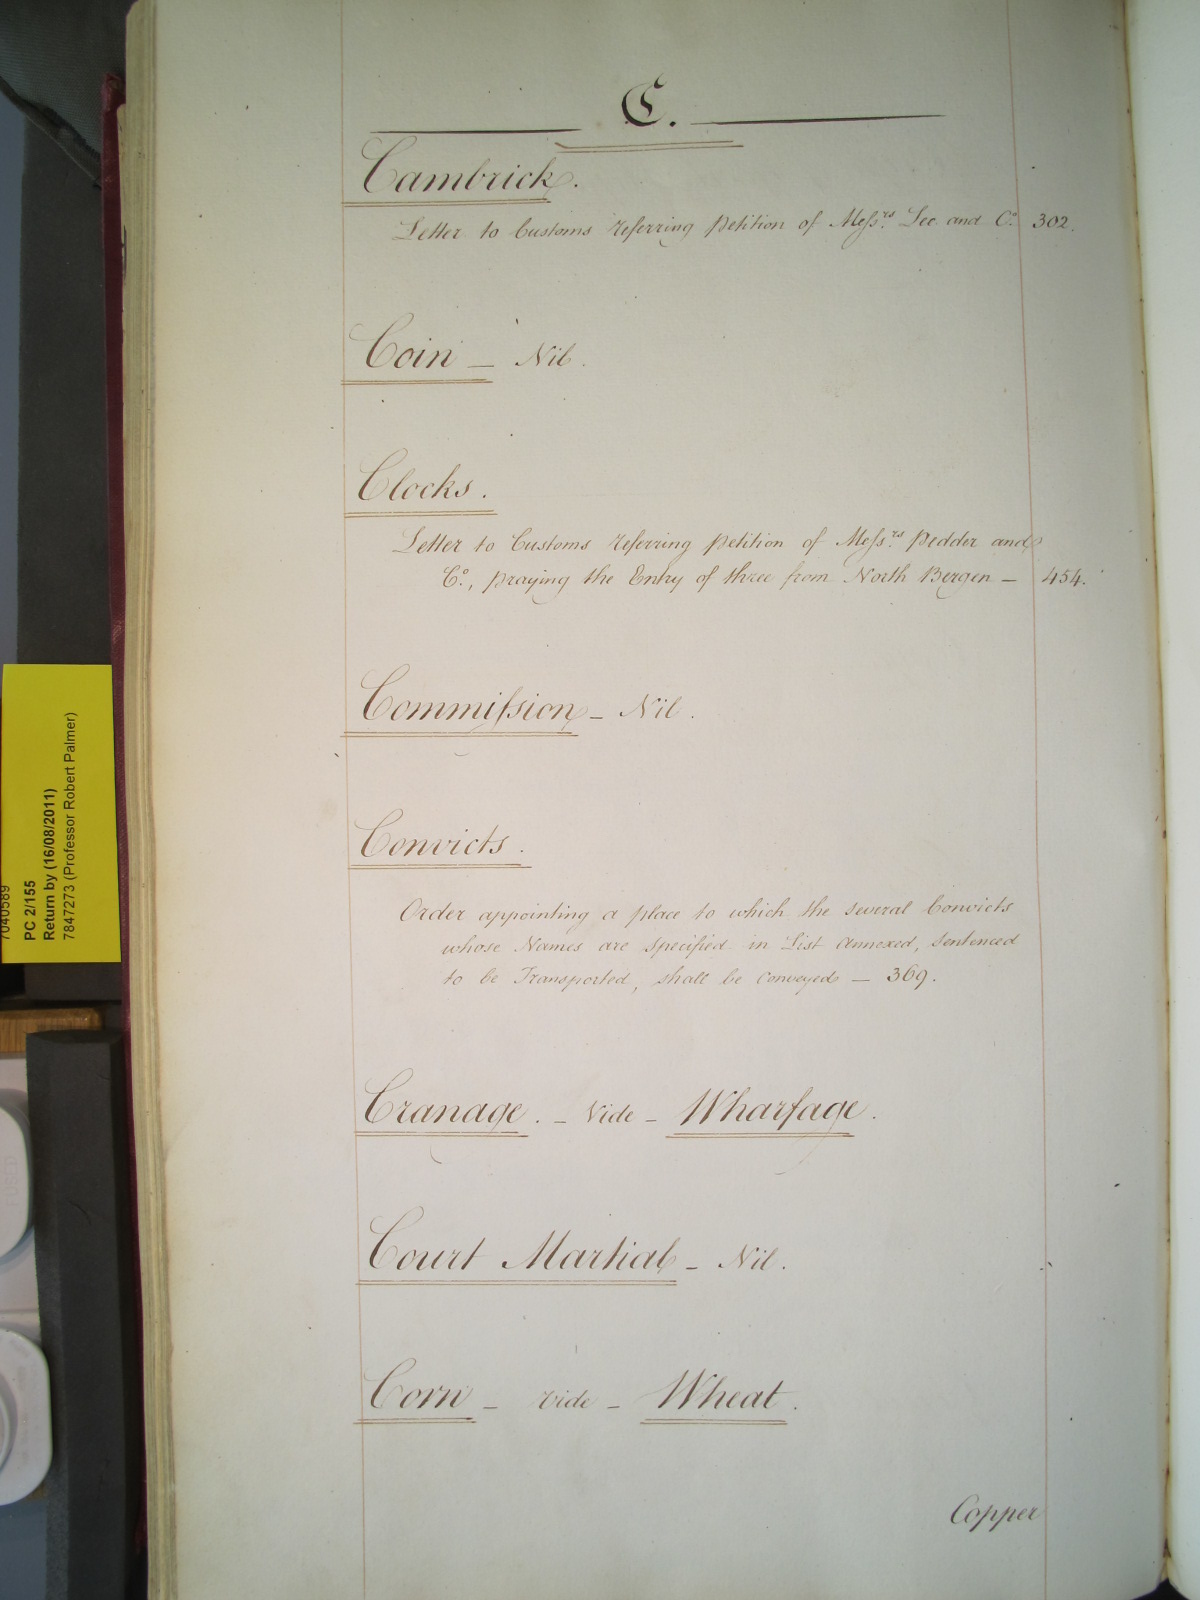 C.
Cambrick.
Letter to Customs referring Petition of Mess.rs Lee and Co. 302.
Coin _ Nil.
Clocks.
Letter to Customs referring Petition of Mess.rs Pedder and
Co., praying the Entry of three from North Bergen — 454.
Commission _ Nil.
Convicts.
Order appointing a place to which the several Convicts
whose Names are specified in List annexed, sentenced
to be Transported, shall be Conveyed — 369.
Cranage. _ Vide _ Wharfage.
Court Martial _ Nil.
Corn _ vide _ Wheat.
Copper
7040589
PC 2/155
Return by (16/08/2011)
7847273 (Professor Robert Palmer)